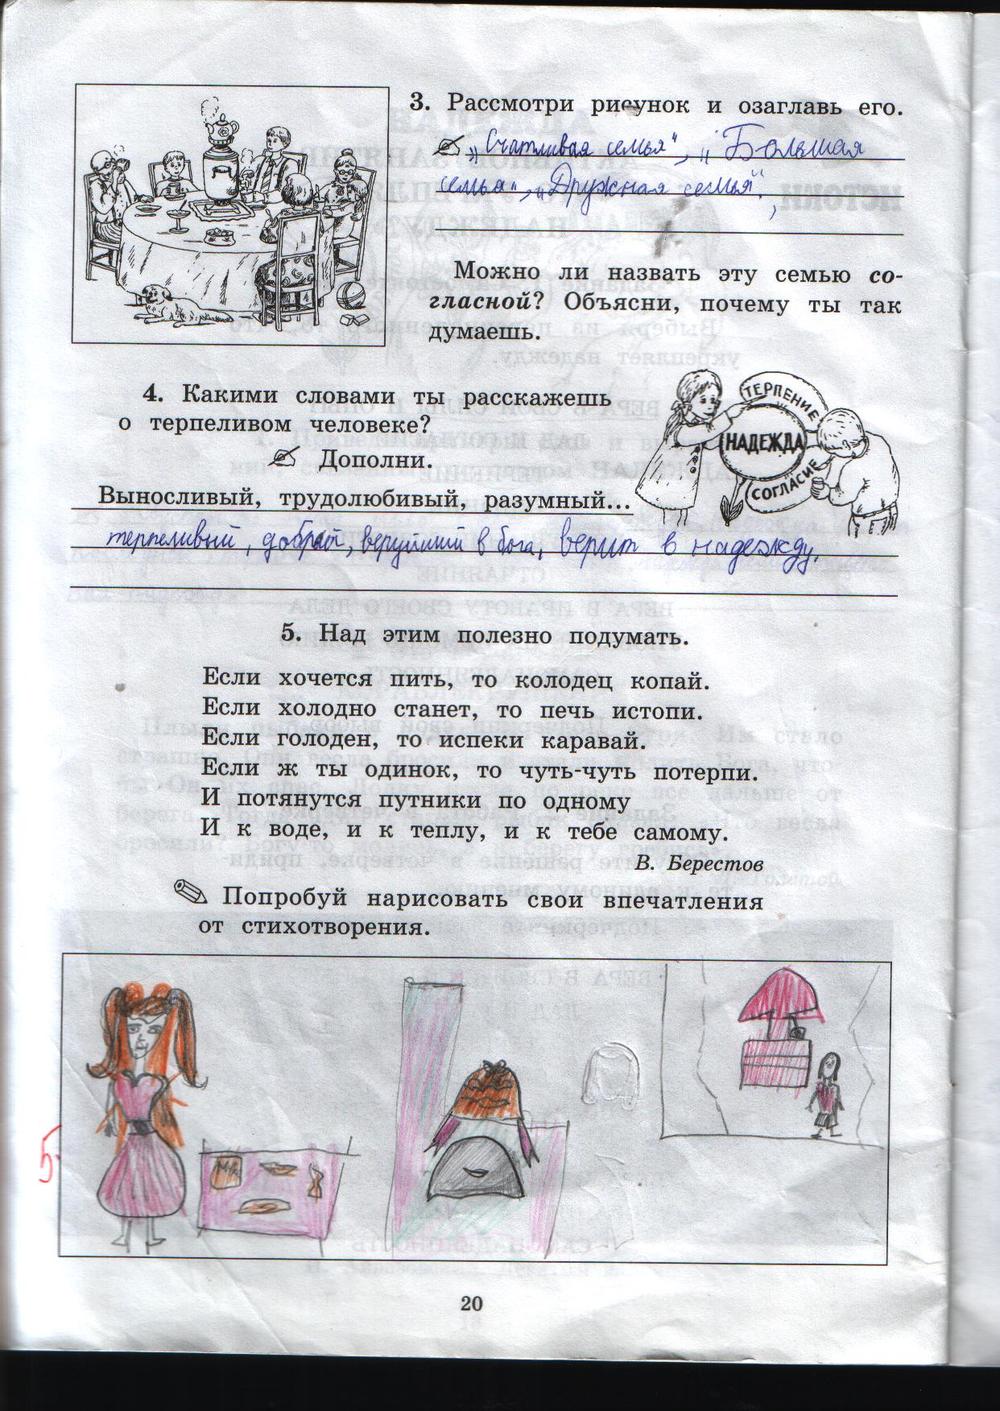 3. Рассмотри рисунок и озаглавь его.
„Счатливая семья", „Большая
семья", „Дружная семья".
Можно ли назвать эту семью со-
гласной? Объясни, почему ты так
думаешь.
4. Какими словами ты расскажешь
о терпеливом человеке?
Дополни.
ТЕРПЕНИЕ
НАДЕЖДА
СОГЛАСИЕ
Выносливый, трудолюбивый, разумный...
терпеливый, добрый, верующий в бога, верит в надежду.
5. Над этим полезно подумать.
Если хочется пить, то колодец копай.
Если холодно станет, то печь истопи.
Если голоден, то испеки каравай.
Если ж ты одинок, то чуть-чуть потерпи.
И потянутся путники по одному
И к воде, и к теплу, и к тебе самому.
В. Берестов
Попробуй нарисовать свои впечатления
от стихотворения.
5
20